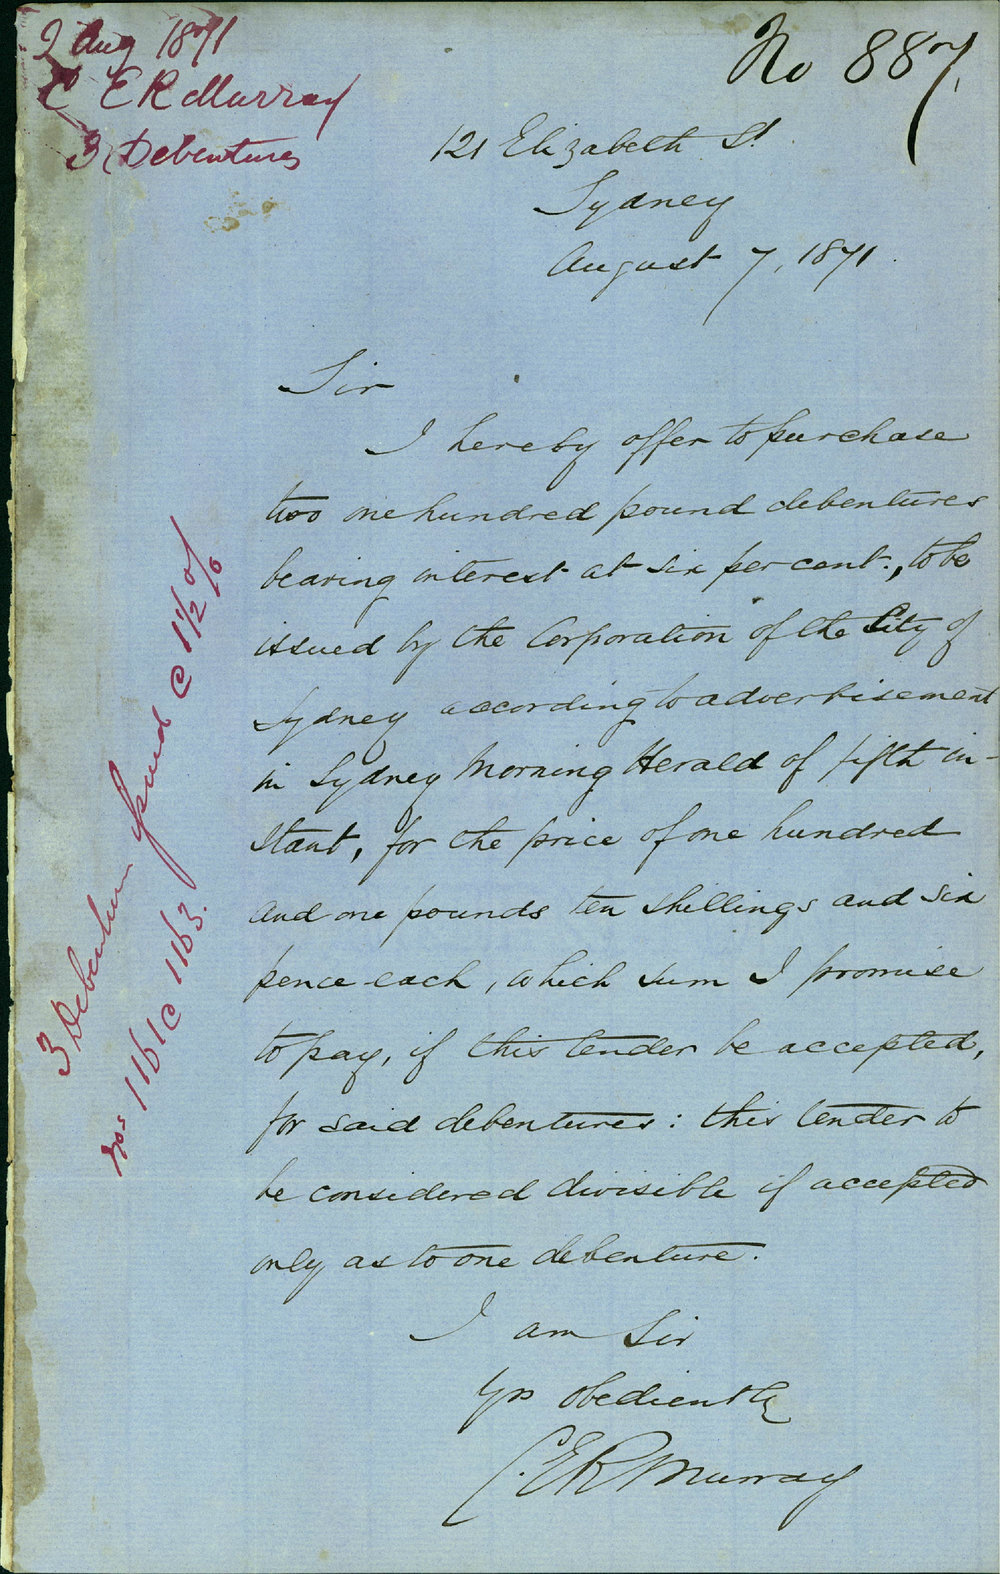 2 Aug 1871
C E R Murray
3 Debentures
No 887
121 Elizabeth St
Sydney
August 7, 1871.
Sir
I hereby offer to purchase
two one hundred pound debentures
bearing interest at six per cent., to be
issued by the Corporation of the City of
Sydney according to advertisement
in Sydney Morning Herald of fifth in-
stant, for the price of one hundred
and one pounds ten shillings and six
pence each, which sum I promise
to pay, if this tender be accepted,
for said debentures: this tender to
be considered divisible if accepted
only as to one debenture.
I am Sir
Yrs obediently
C. E R Murray
3 Debentures issued @ 1 1/2 %
nos 1161 @ 1163.